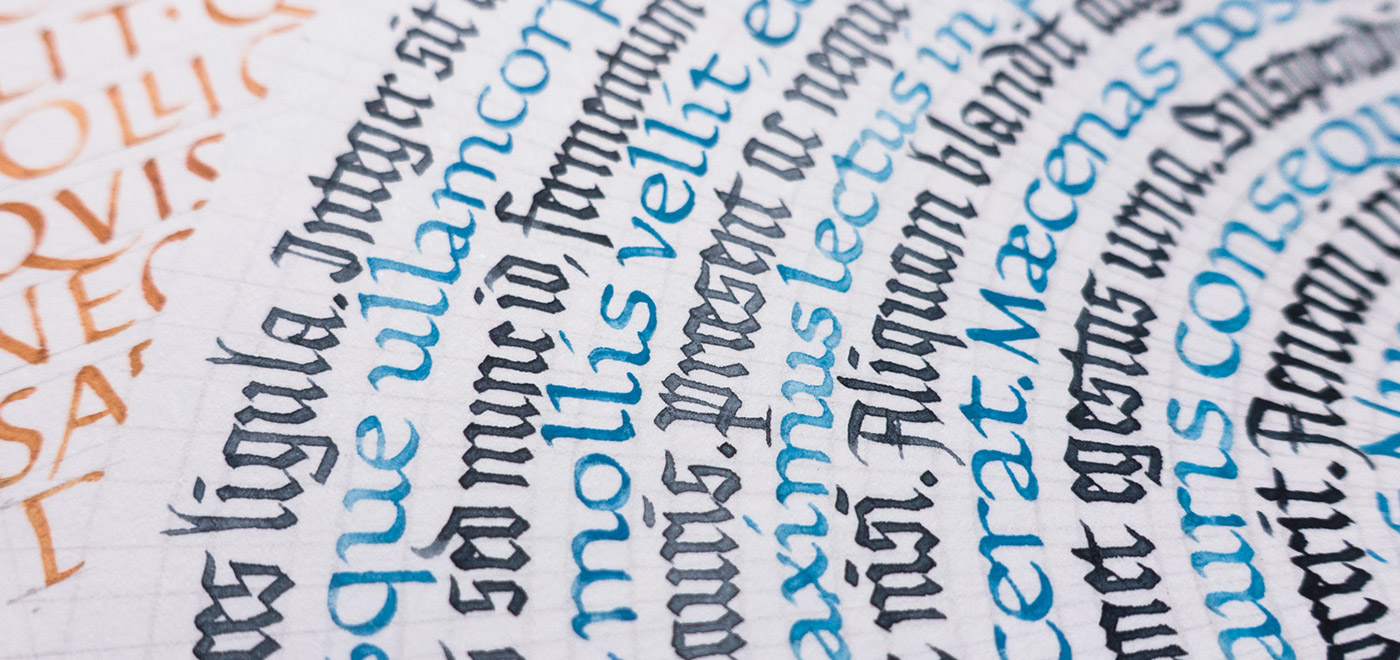 LIT·
OLLIC
QVIS
VEC
SA
ligula. Integer sit
que ullamcorp
sed nunc id, fermentum
mollis vellit, e
auris. præsent ac neque
aximus lectus in
nisi. Aliquam blandit aug
cerat. Mæcenas posu
met egestas urna. Suspend
auris consequ
rerit. Aenean in